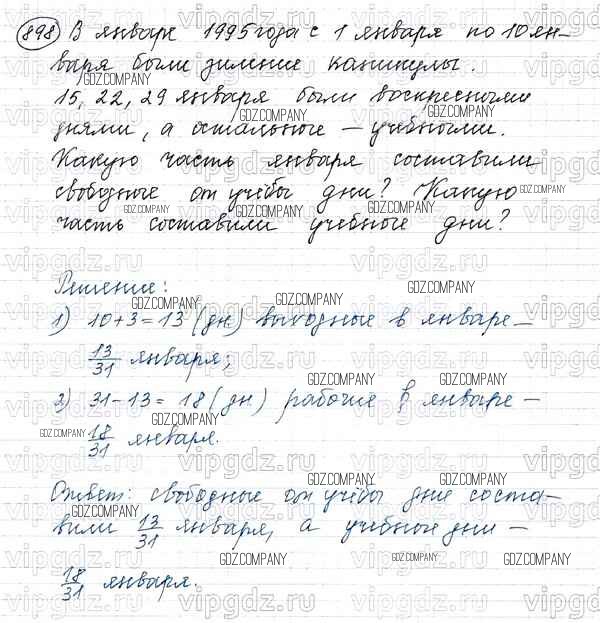 898 В январе 1995 года с 1 января по 10 ян-
варя были зимние каникулы.
15, 22, 29 января были воскресными
днями, а остальные — учебными.
Какую часть января составили
свободные от учёбы дни? Какую
часть составили учебные дни?
Решение:
1) 10+3=13 (дн.) выходные в январе —
13/31 января;
2) 31-13=18 (дн.) рабочие в январе —
18/31 января.
Ответ: свободные от учёбы дни соста-
вили 13/31 января, а учебные дни —
18/31 января.